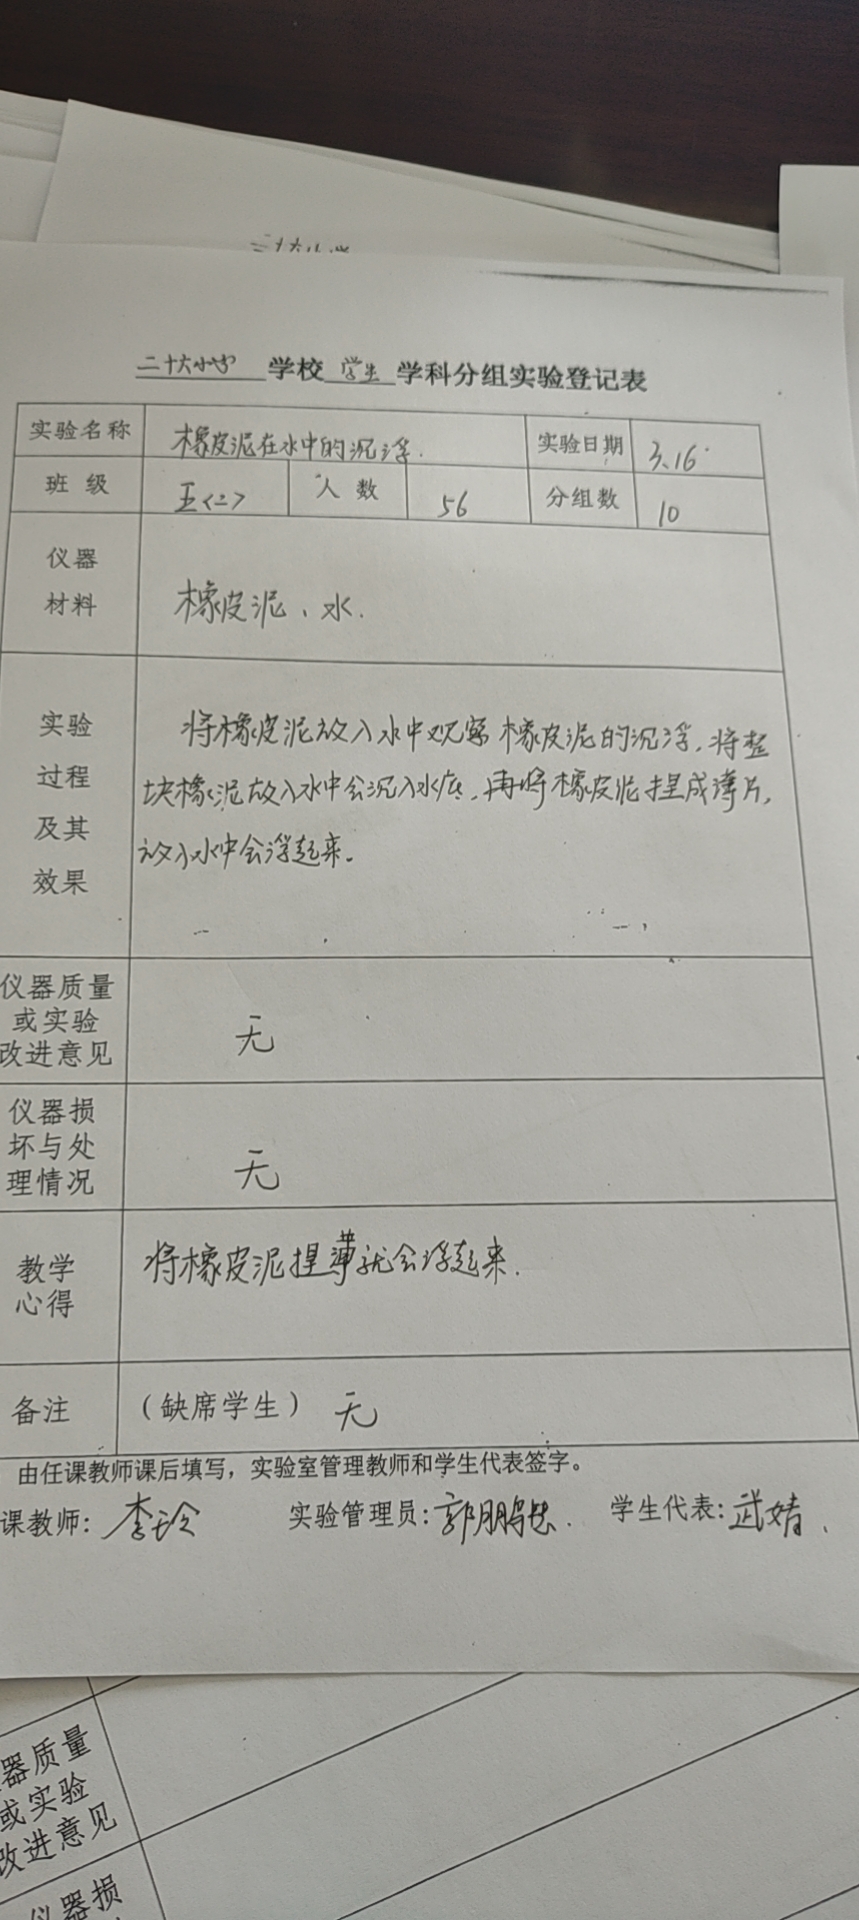 二十六小学 学校 学生 学科分组实验登记表
实验名称 橡皮泥在水中的沉浮. 实验日期 3.16
班级 五<二> 人数 56 分组数 10
仪器
材料
橡皮泥、水.
实验
过程
及其
效果
将橡皮泥放入水中观察橡皮泥的沉浮,将整
块橡泥放入水中会沉入水底,再将橡皮泥捏成薄片,
放入水中会浮起来。
仪器质量
或实验
改进意见
无
仪器损
坏与处
理情况
无
教学
心得
将橡皮泥捏薄就会浮起来.
备注 (缺席学生) 无
由任课教师课后填写，实验室管理教师和学生代表签字。
课教师: 李玲 实验管理员: 郭鹏 学生代表: 武婧
器质量
或实验
改进意见
仪器损